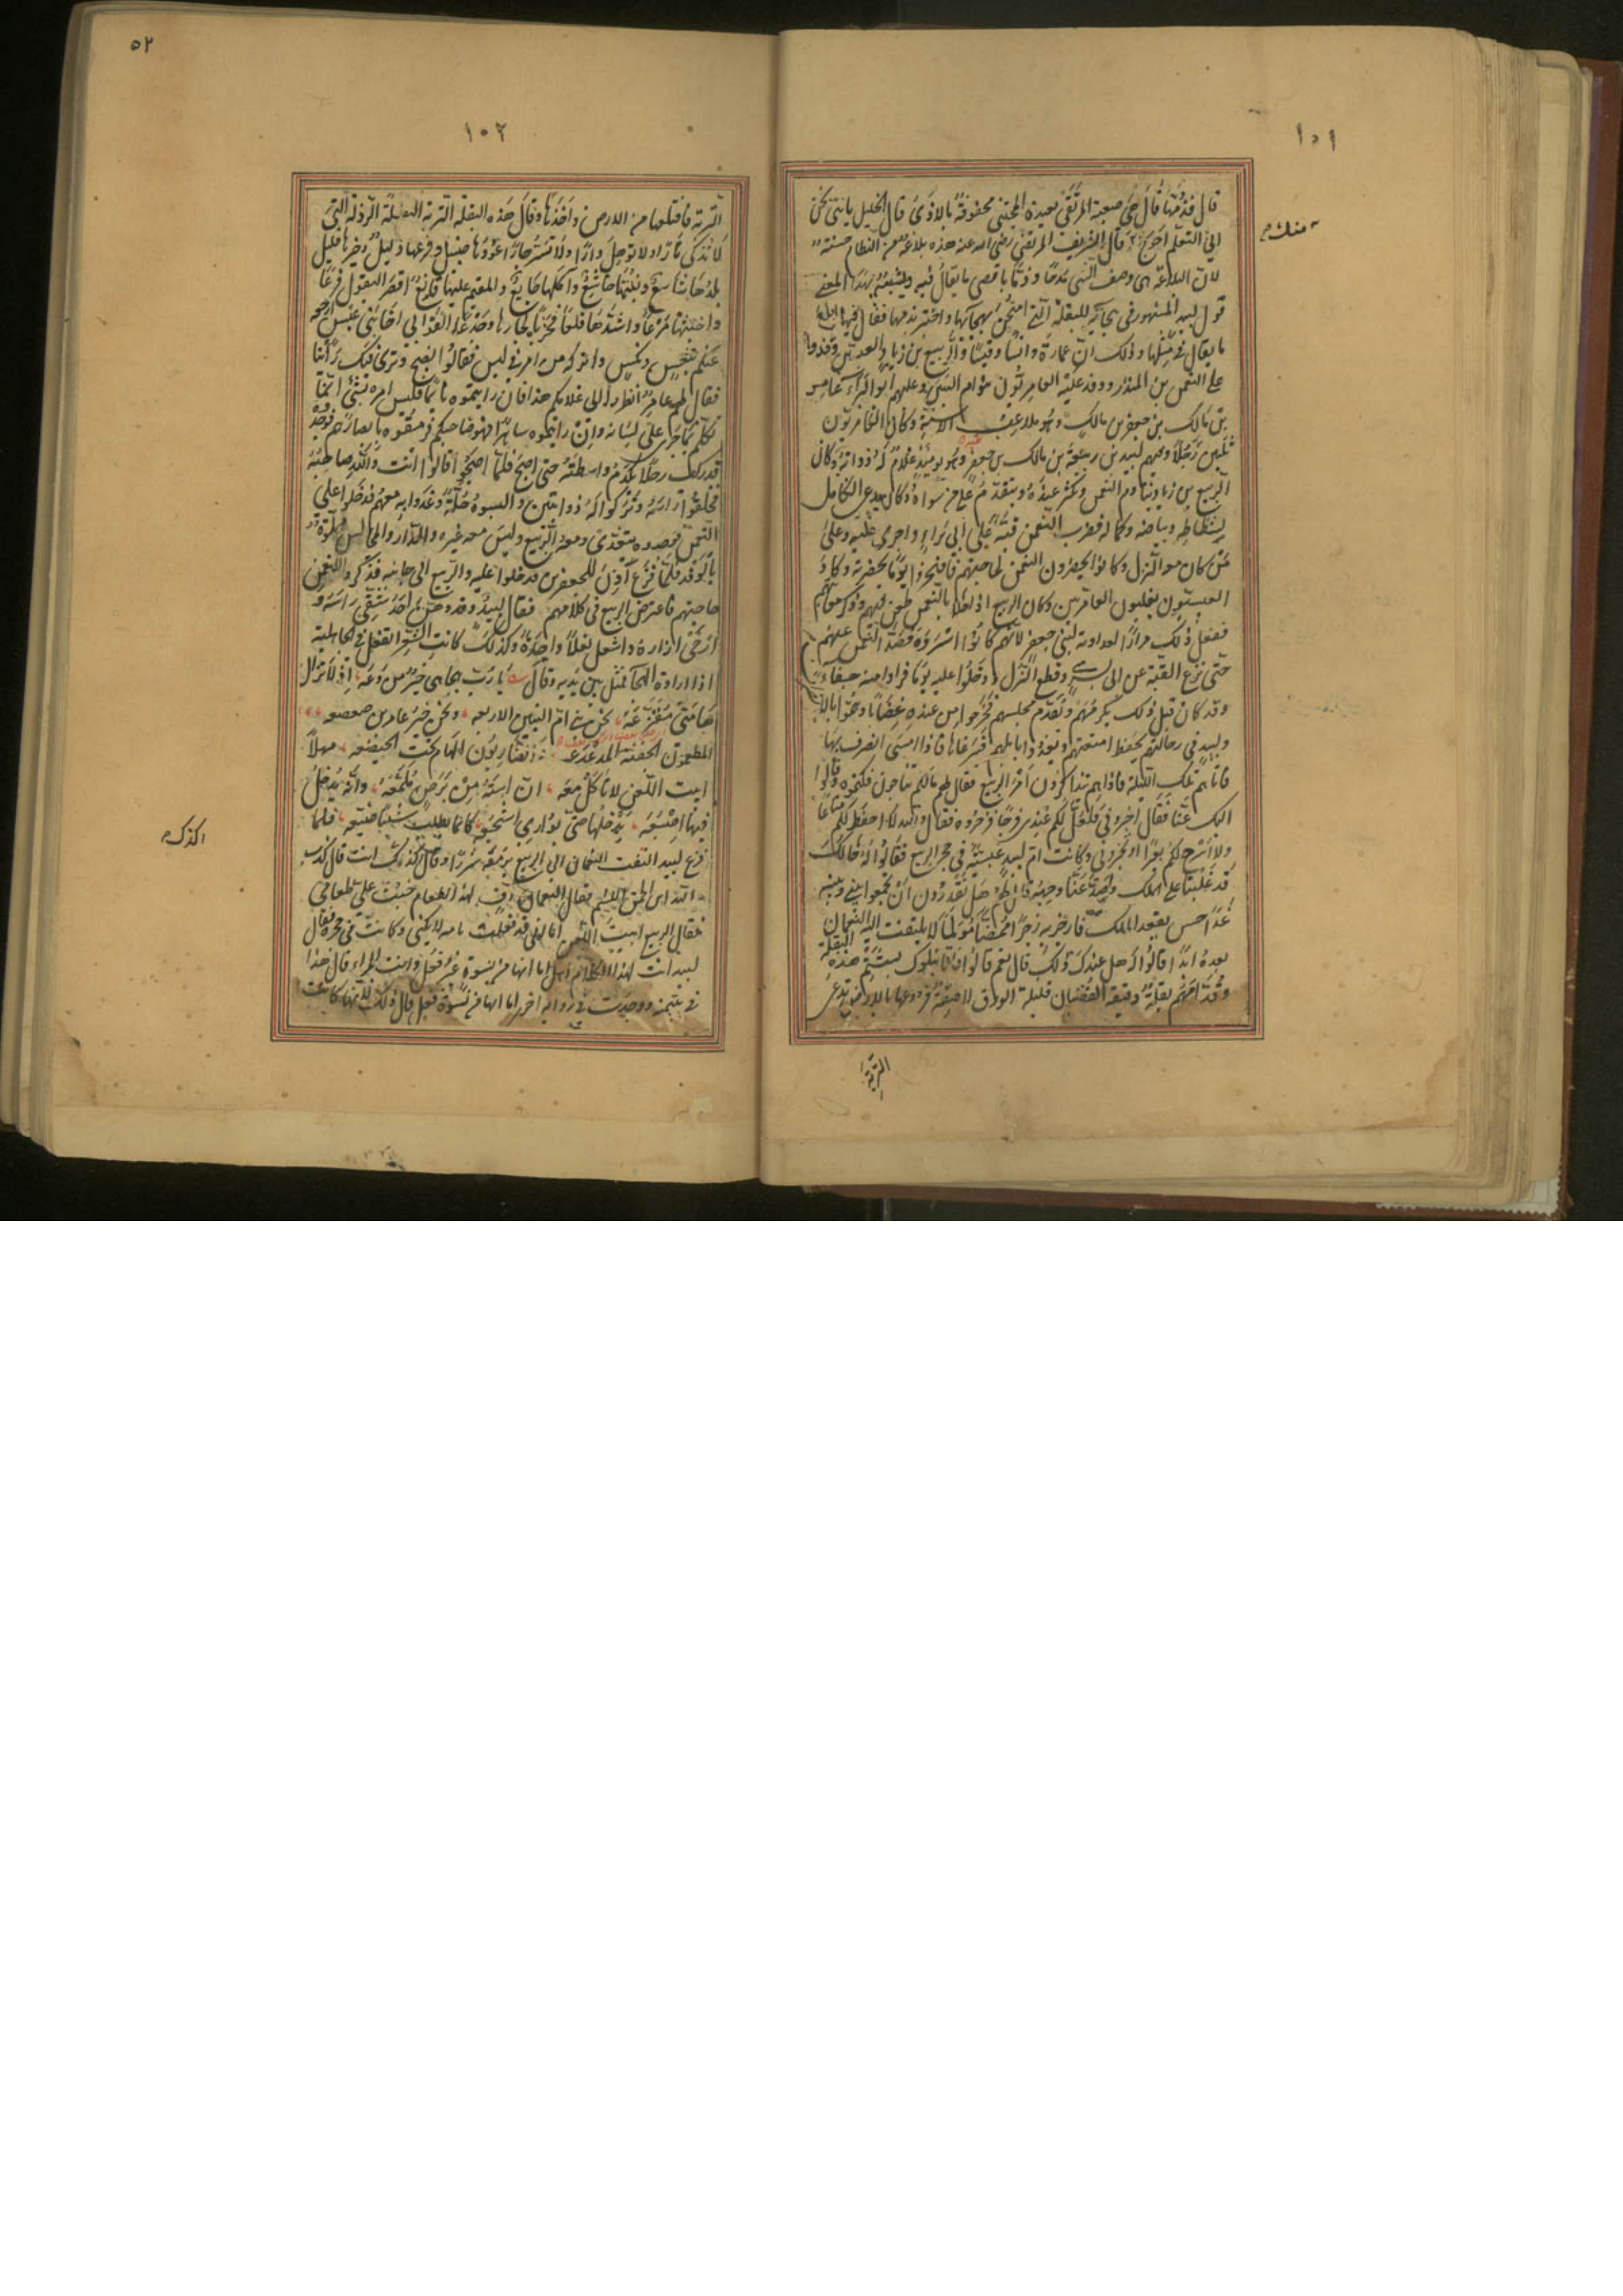 ١٠١
قال فذمها قال هي صعبة المرتقى بعيدة المجتنى محفوفة بالاذى قال الخليل يا بني نحن
منك
الى التعلم احوج قال الشريف المرتضى رضي الله عنه هذه بلاغة من النظام حسنة
لان البلاغة هي وصف الشي مدحا وذما باقصى ما يقال فيه وليشبه بهذا المعنى
قول لبيد المشهور في هجائه للبقلة التي امتحن بهجائها واختبر بذمها فقال فيها ابلغ
ما يقال في مثلها وذلك ان عمارة وانسا وقيسا والربيع بن زياد العبسيين وفدوا
على النعمن بن المنذر ووفد عليه العامريون بنو ام البنين وعليهم ابو البراء عامر
بن مالك بن جعفر بن مالك وهو ملاعب الاسنة وكان العامريون
ثلثين رجلا وفيهم لبيد بن ربيعة بن مالك بن جعفر وهو يومئذ غلام له ذوابة وكان
الربيع بن زياد ينادم النعمن ويكثر عنده ويتقدم على من سواه وكان يدعى الكامل
لشطاطه وبياضه وكماله فضرب النعمن قبة على ابي براء واجرى عليه وعلى
من كان معه النزل وكانوا يحضرون النعمن لحاجتهم فافتخروا يوما بحضرته وكاد
العبسيون يغلبون العامريين وكان الربيع اذا خلا بالنعمن طعن فيهم وذكر معايبهم
ففعل ذلك مرارا لعداوته لبني جعفر لانهم كانوا اسروه فصد النعمن عنهم
حتى نزع القبة عن ابي براء وقطع النزل ودخلوا عليه يوما فراوا منه جفاء
وقد كان قبل ذلك يكرمهم ويقدم مجلسهم فخرجوا من عنده غضابا وهموا بالانصراف
ولبيد في رحالهم يحفظ امتعتهم ويغدو بابلهم فيرعاها فاذا امسى انصرف بها
فاتاهم تلك الليلة فاذا هم يتذاكرون امر الربيع فقال لهم مالكم تتناجون فكتموه وقالوا
اليك عنا فقال اخبروني فلعل لكم عندي فرجا فزجروه فقال والله لا احفظ لكم متاعا
ولا اسرح لكم بعيرا او تخبروني وكانت ام لبيد عبسية في حجر الربيع فقالوا له خالك
قد غلبنا على الملك وصد عنا وجهه قال لهم هل تقدرون ان تجمعوا بيني وبينه
غدا حين يقعد الملك فارجز به رجزا ممضا مولما لا يلتفت اليه النعمان
بعده ابدا قالوا له هل عندك ذلك قال نعم قالوا فانا نبلوك بشتم هذه البقلة
وقدامهم بقلة دقيقة القضبان قليلة الورق لاصقة فروعها بالارض تدعى
التربة
٥٢
١٠٢
التربة فاقتلعها من الارض واخذها وقال هذه البقلة التربة التفلة الرذلة التي
لا تذكي نارا ولا توهل دارا ولا تستر جارا عودها ضئيل وفرعها ذليل وخيرها قليل
بلدها شاسع ونبتها خاشع واكلها جايع والمقيم عليها قانع اقصر البقول فرعا
واخبثها مرعا واشدها قلعا فحربا لجارها وجدعا القوا بي اخا بني عبس ارجعه
عنكم بتعس ونكس واتركه من امره في لبس فقالوا نصبح ونرى فيك راينا
فقال لهم عامر انظروا الى غلامكم هذا فان رايتموه نائما فليس امره بشي انما
تكلم بما جرى على لسانه وان رايتموه ساهرا فهو صاحبكم فرمقوه بابصارهم فوجدوه
قد ركب رحلا يكدم واسطته حتى اصبح فلما اصبحوا قالوا انت والله صاحبه
فحلقوا راسه وتركوا له ذوابتين والبسوه حلة وغدوا به معهم فدخلوا على
النعمن فوجدوه يتغدى ومعه الربيع وليس معه غيره والدار والمجالس مملوة
بالوفد فلما فرغ اذن للجعفريين فدخلوا عليه والربيع الى جانبه فذكروا للنعمن
حاجتهم فاعترض الربيع في كلامهم فقال لبيد وقد دهن احد شقي راسه و
ارخى ازاره وانتعل نعلا واحدة وكذلك كانت الشعراء تفعل في الجاهلية
اذا ارادت الهجا فمثل بين يديه وقال يا رب هيجا هي خير من دعه اذ لا تزال
هامتي مقزعه نحن بنو ام البنين الاربعه ونحن خير عامر بن صعصعه
المطعمون الجفنة المدعدعه والضاربون الهام تحت الخيضعه مهلا
ابيت اللعن لا تاكل معه ان استه من برص ملمعه وانه يدخل
فيها اصبعه يدخلها حتى يواري اشجعه كانما يطلب شيئا ضيعه فلما
فرغ لبيد التفت النعمان الى الربيع يرمقه شزرا وقال كذلك انت قال كذب
اكذلك
والله ابن الحمق اللئيم فقال النعمان اف لهذا الطعام خبثت علي طعامي
فقال الربيع ابيت اللعن اما اني قد فعلت بامه لا يكني وكانت في حجره فقال
لبيد انت لهذا الكلام اهل اما انها من نسوة غير فعل وانت المراء قال هذا
في يتيمته ووجدت في رواية اخرى اما انها من نسوة فعل قال ذلك لانها كانت